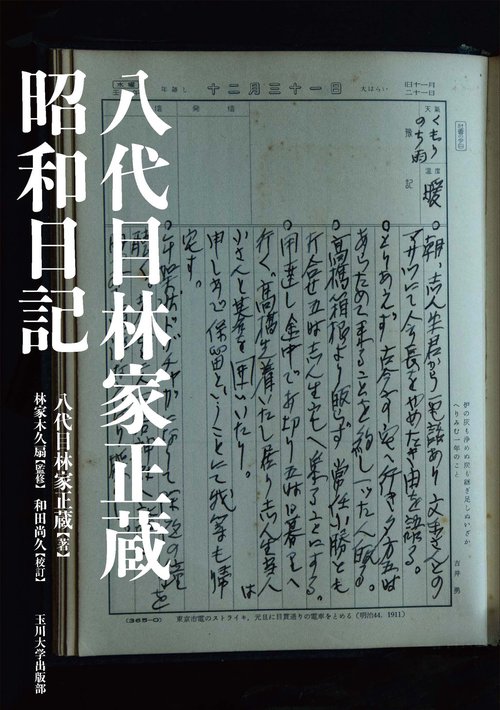 八代目林家正蔵
昭和日記
八代目林家正蔵【著】
林家木久扇【監修】 和田尚久【校訂】
玉川大学出版部
旧十一月
二十一日
大はらい
十二月三十一日
年越し
水曜
天気
くもり
のち雨
温度
暖
予記
発信
朝、志ん生君から電話あり 文楽さんとの
にて会長をやめたき由を語る。
とりあえず、古今亭宅へ行き夕方五時
あらためて来ることを約し一ったん帰る。
高橋箱根より帰らず、常任小勝とも
打合せ五時志ん生宅へ集ることにする。
用達し途中で 五時日暮里へ
行く。高橋先着いたし居り志ん生夫人は
小さんと碁を いたり。
保留ということにて我家も帰
宅す。
炉の灰も浄めぬ炭も継ぎ足しぬいざか
へりみむ一年のこと
吉井 勇
(365—0)
東京市電のストライキ。元旦に目貫通りの電車をとめる (明治44. 1911)